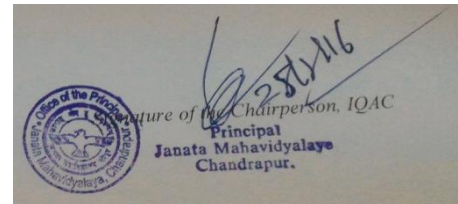 Signature of the Chairperson, IQAC
Principal
Janata Mahavidyalaye
Chandrapur.
Office of the Principal
Janata Mahavidyalaya, Chandrapur